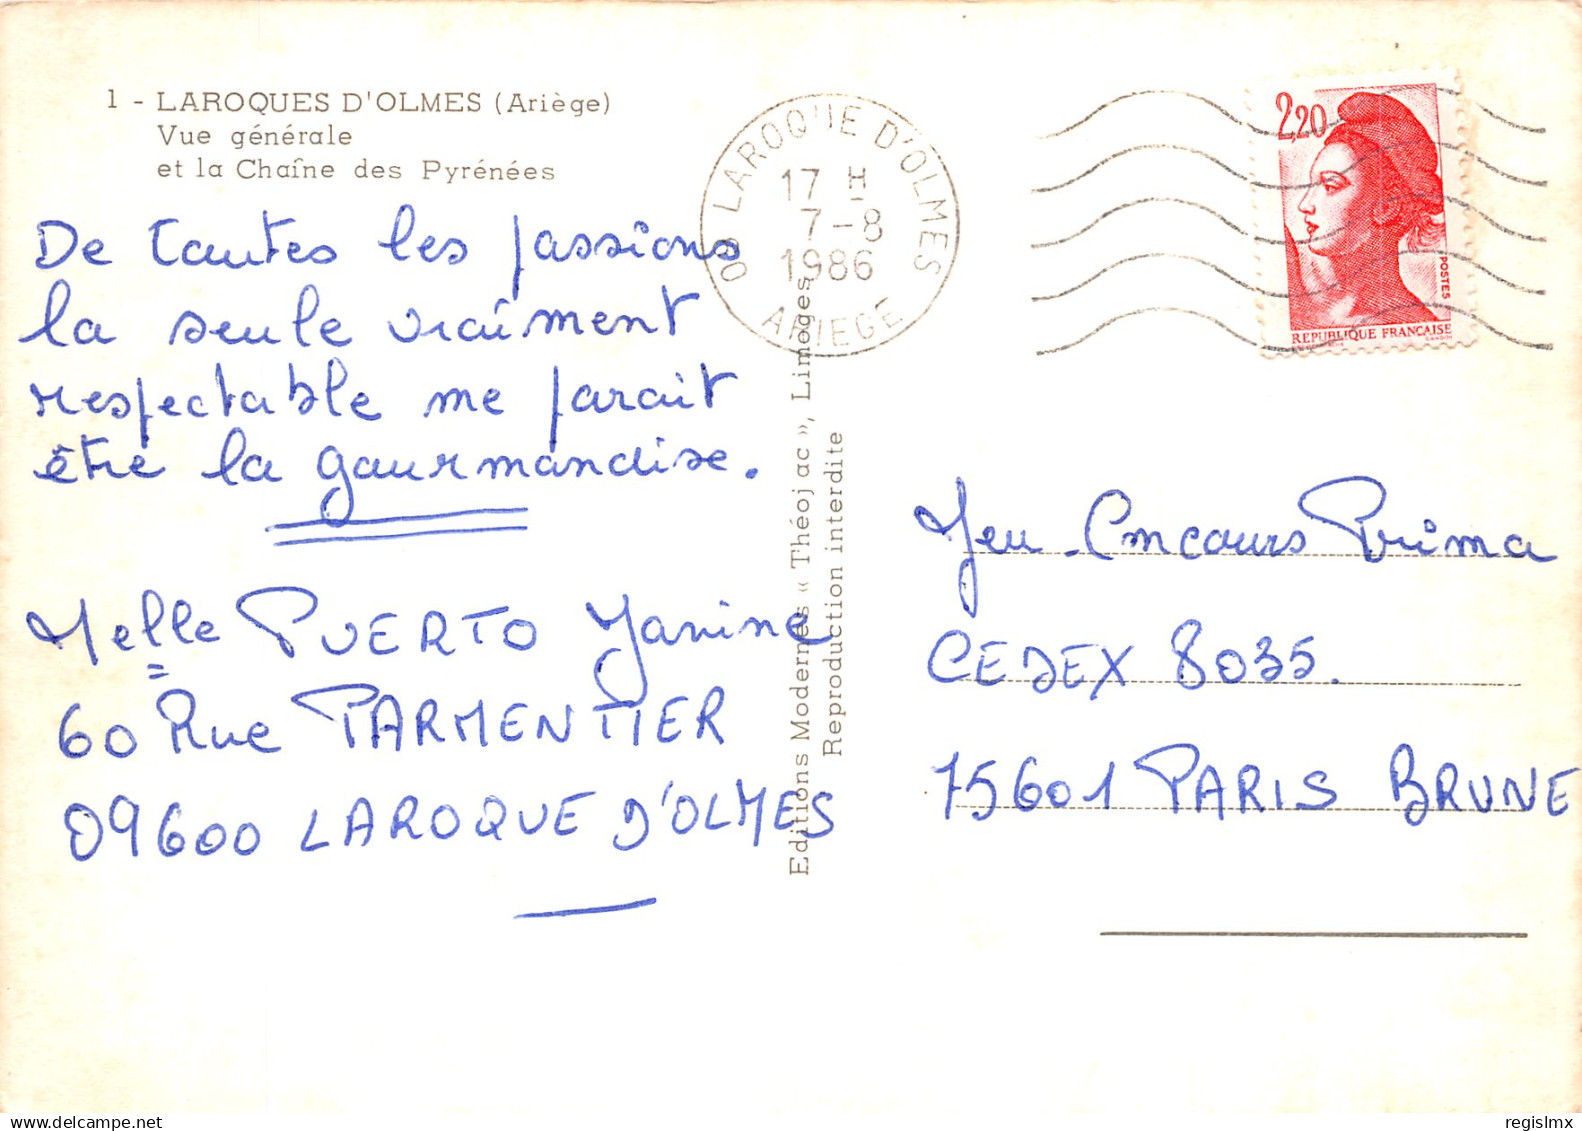 1 - LAROQUES D'OLMES (Ariège)
Vue générale
et la Chaîne des Pyrénées
De toutes les passions
la seule vraiment
respectable me parait
être la gourmandise.
Melle PUERTO Janine
60 Rue PARMENTIER
09600 LAROQUE D'OLMES
Editions Modernes « Théojac », Limoges
Reproduction interdite
09 LAROQUE D'OLMES
17 H
7-8
1986
ARIEGE
2,20
POSTES
REPUBLIQUE FRANÇAISE
Jeu-Concours Prima
CEDEX 8035.
75601 PARIS BRUNE
regislmx